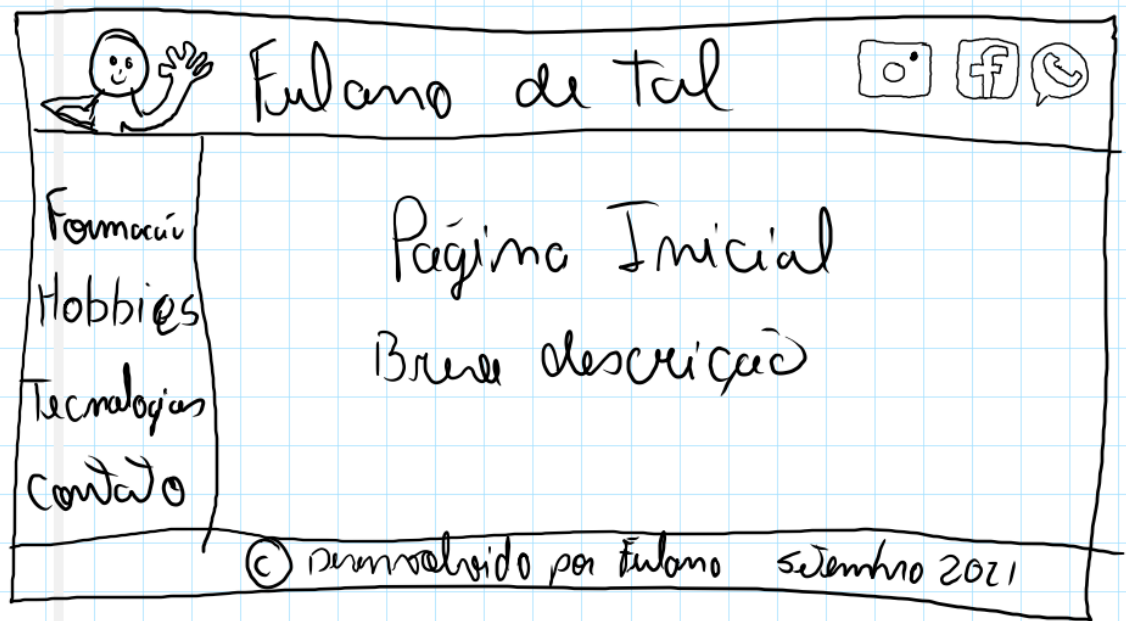 Fulano de Tal
Formação
Hobbies
Tecnologias
Contato
Página Inicial
Breve descrição
© Desenvolvido por Fulano setembro 2021